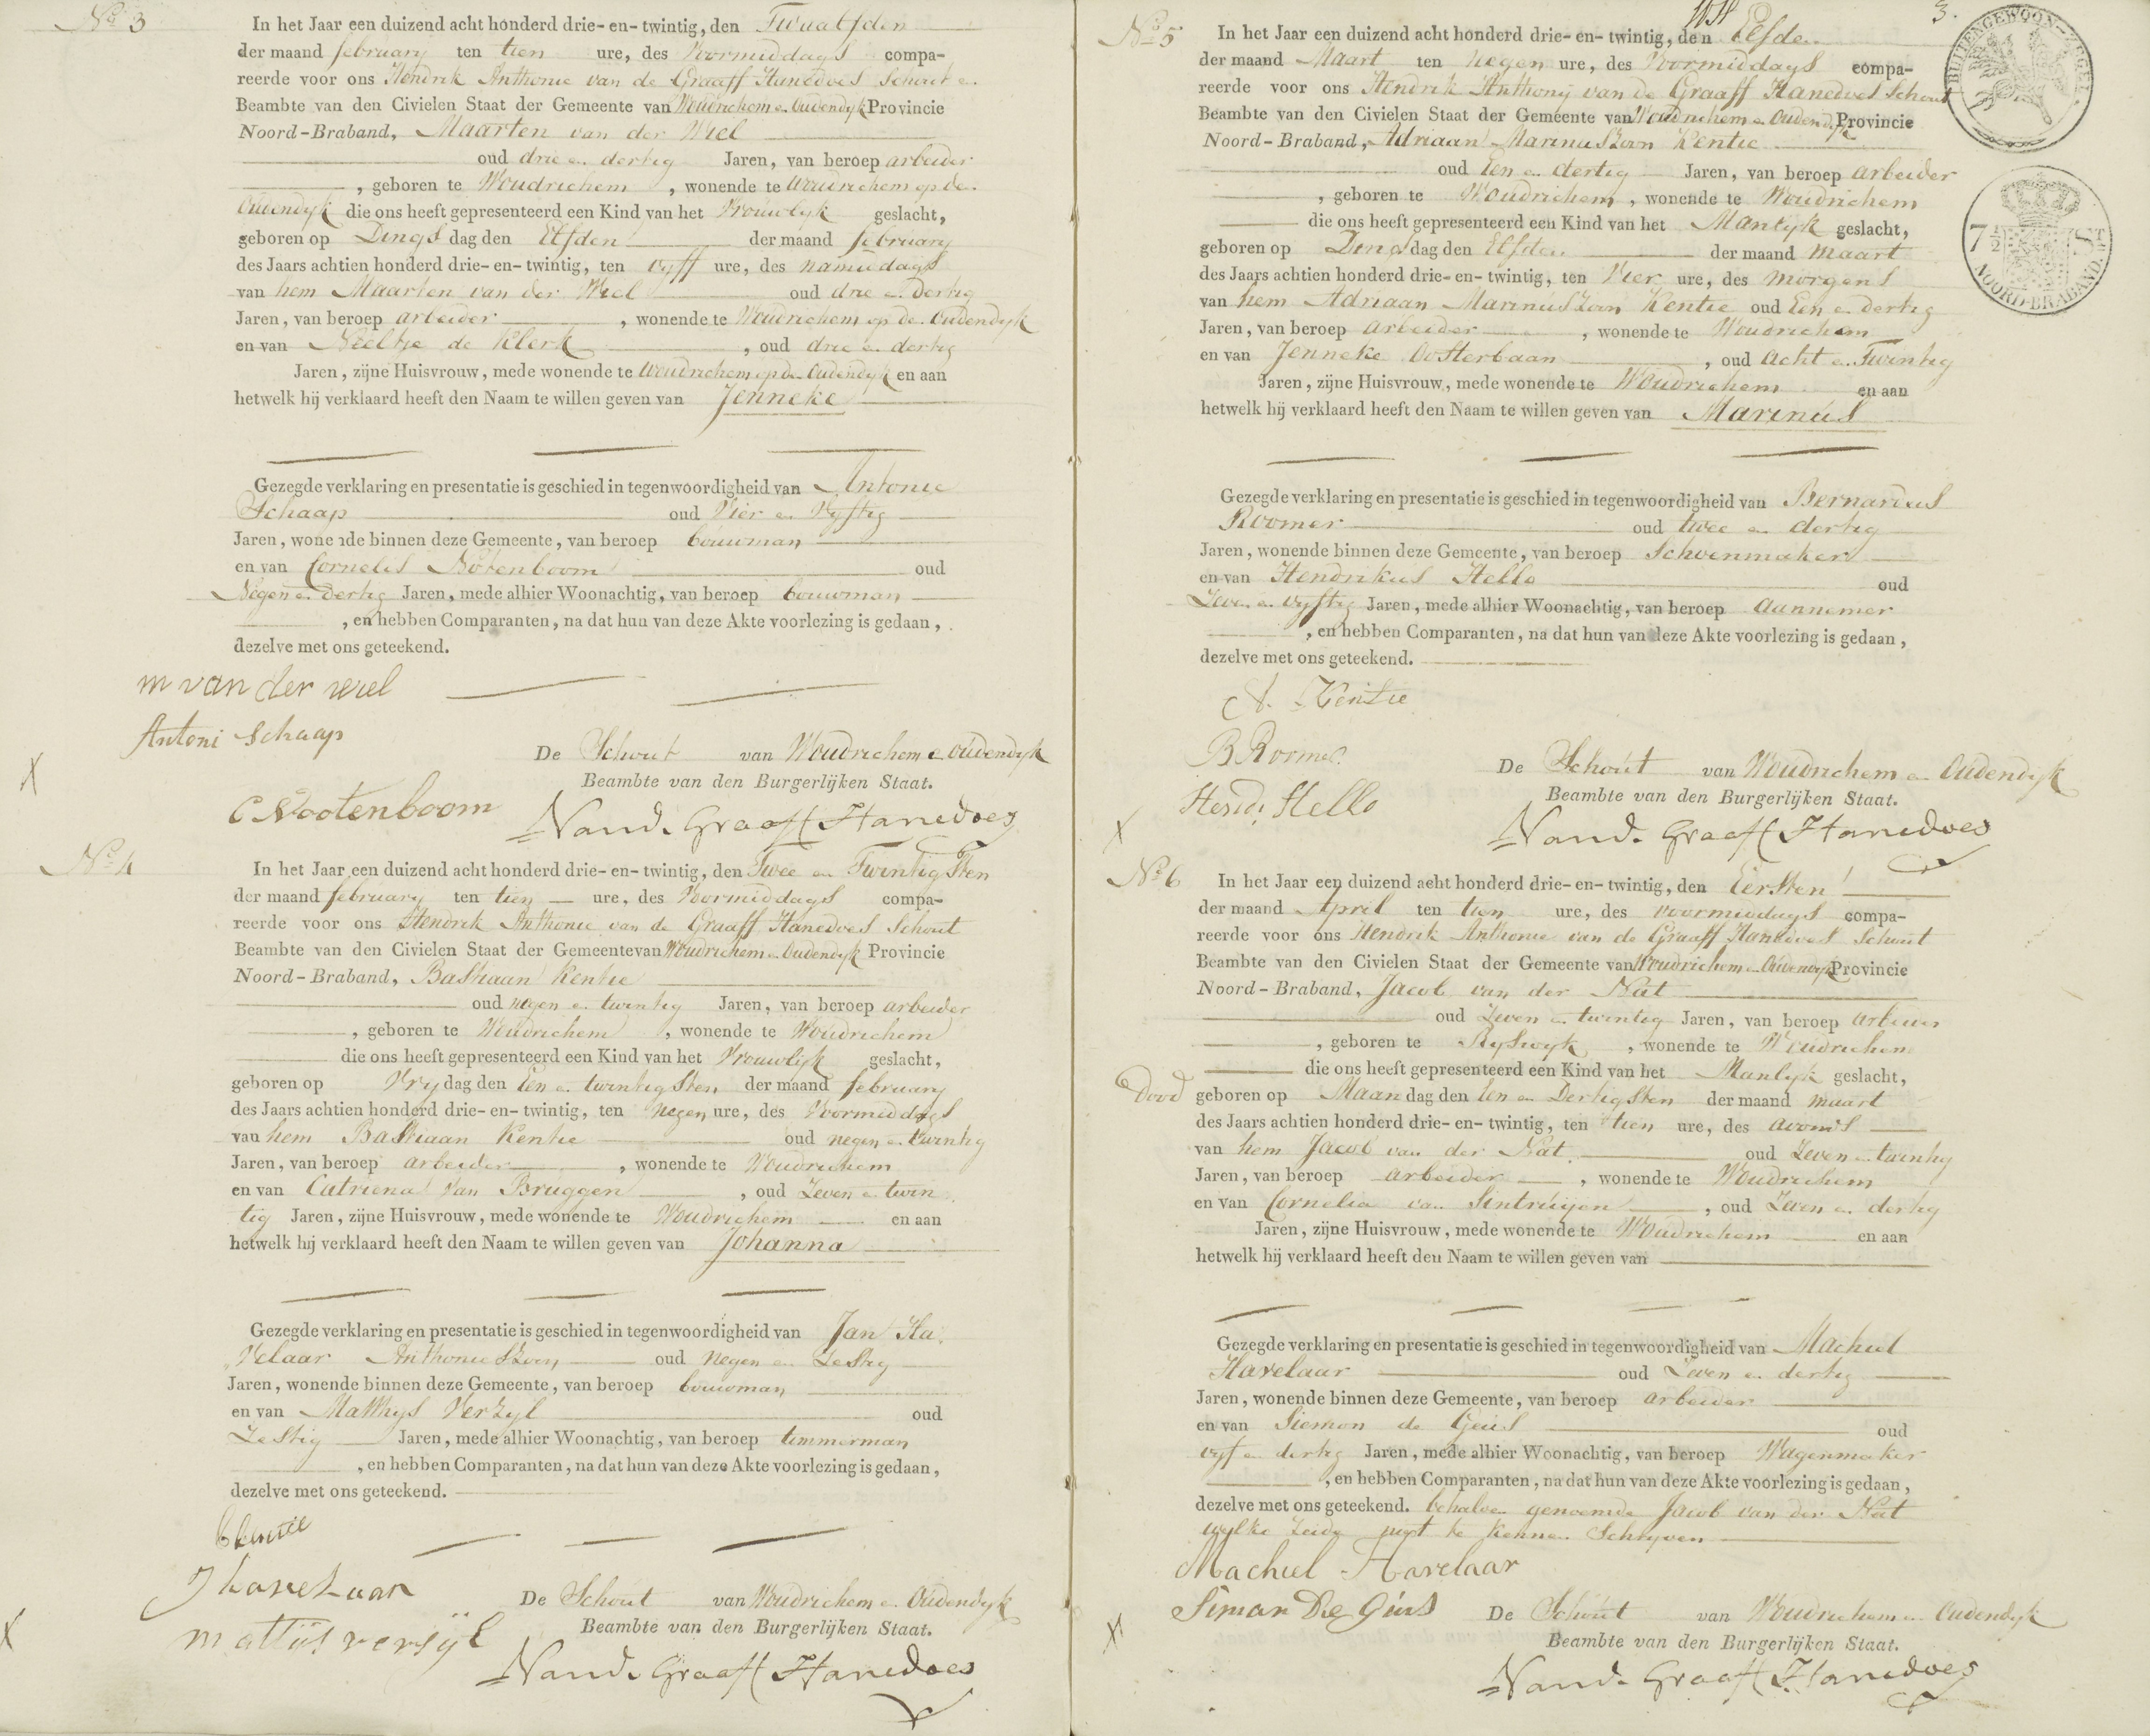 No 3
In het Jaar een duizend acht honderd drie-en-twintig, den Twaalfden
der maand february ten tien ure, des Voormiddags compa-
reerde voor ons Hendrik Anthonie van de Graaff Hanedoes Schout en
Beambte van den Civielen Staat der Gemeente van Woudrichem en Oudendyk Provincie
Noord-Braband, Maarten van der Wiel
oud drie en dertig Jaren, van beroep arbeider
, geboren te Woudrichem , wonende te Woudrichem op de
Oudendyk die ons heeft gepresenteerd een Kind van het Vrouwlyk geslacht,
geboren op Dings dag den Elfden der maand february
des Jaars achtien honderd drie-en-twintig, ten vyff ure, des namiddags
van hem Maarten van der Wiel oud drie en dertig
Jaren, van beroep arbeider , wonende te Woudrichem op de Oudendyk
en van Neeltje de Klerk , oud drie en dertig
Jaren, zijne Huisvrouw, mede wonende te Woudrichem op den Oudendyk en aan
hetwelk hij verklaard heeft den Naam te willen geven van Jenneke
Gezegde verklaring en presentatie is geschied in tegenwoordigheid van Antonie
Schaap oud Vier en Vyftig
Jaren, wonende binnen deze Gemeente, van beroep bouwman
en van Cornelis Notenboom oud
Negen en dertig Jaren, mede alhier Woonachtig, van beroep bouwman
, en hebben Comparanten, na dat hun van deze Akte voorlezing is gedaan,
dezelve met ons geteekend.
m van der wiel
Antoni Schaap
De Schout van Woudrichem en Oudendyk
Beambte van den Burgerlijken Staat.
C Nootenboom
HAvand. Graaff Hanedoes
No 4
In het Jaar een duizend acht honderd drie-en-twintig, den Twee en Twintigsten
der maand february ten tien ure, des Voormiddags compa-
reerde voor ons Hendrik Anthonie van de Graaff Hanedoes Schout
Beambte van den Civielen Staat der Gemeente van Woudrichem en Oudendyk Provincie
Noord-Braband, Bastiaan Kentie
oud negen en twintig Jaren, van beroep arbeider
, geboren te Woudrichem , wonende te Woudrichem
die ons heeft gepresenteerd een Kind van het Vrouwlijk geslacht,
geboren op Vry dag den Een en twintigsten der maand february
des Jaars achtien honderd drie-en-twintig, ten Negen ure, des Voormiddags
van hem Bastiaan Kentie oud negen en twintig
Jaren, van beroep arbeider , wonende te Woudrichem
en van Catriena Van Bruggen , oud Zeven en twin
tig Jaren, zijne Huisvrouw, mede wonende te Woudrichem en aan
hetwelk hij verklaard heeft den Naam te willen geven van Johanna
Gezegde verklaring en presentatie is geschied in tegenwoordigheid van Jan Ha
velaar Anthonie Szoon oud Negen en Zestig
Jaren, wonende binnen deze Gemeente, van beroep bouwman
en van Matthys Verzyl oud
Zestig Jaren, mede alhier Woonachtig, van beroep timmerman
, en hebben Comparanten, na dat hun van deze Akte voorlezing is gedaan,
dezelve met ons geteekend.
B Kentie
J havelaar
De Schout van Woudrichem en Oudendyk
Beambte van den Burgerlijken Staat.
mattijs versijl
HAvand. Graaff Hanedoes
3.
BUITENGEWOON-ZEGEL.
7 1/2 ST
NOORD-BRABAND.
No 5
In het Jaar een duizend acht honderd drie-en-twintig, den Elfden
der maand Maart ten Negen ure, des Voormiddags compa-
reerde voor ons Hendrik Anthonij van de Graaff Hanedoes Schout
Beambte van den Civielen Staat der Gemeente van Woudrichem en Oudendyk Provincie
Noord-Braband, Adriaan Marinus Zoon Kentie
oud Een en dertig Jaren, van beroep arbeider
, geboren te Woudrichem , wonende te Woudrichem
die ons heeft gepresenteerd een Kind van het Manlyk geslacht,
geboren op Dings dag den Elfden der maand maart
des Jaars achtien honderd drie-en-twintig, ten Vier ure, des morgens
van hem Adriaan Marinus Zoon Kentie oud Een en dertig
Jaren, van beroep arbeider , wonende te Woudrichem
en van Jenneke Oosterbaan , oud acht en Twintig
Jaren, zijne Huisvrouw, mede wonende te Woudrichem en aan
hetwelk hij verklaard heeft den Naam te willen geven van Marinus
Gezegde verklaring en presentatie is geschied in tegenwoordigheid van Bernardus
Roomer oud twee en dertig
Jaren, wonende binnen deze Gemeente, van beroep Schoenmaker
en van Hendrikus Hello oud
Zeven en vyftig Jaren, mede alhier Woonachtig, van beroep aannemer
, en hebben Comparanten, na dat hun van deze Akte voorlezing is gedaan,
dezelve met ons geteekend.
A. Kentie
B Roomer
De Schout van Woudrichem en Oudendijk
Beambte van den Burgerlijken Staat.
Hend. Hello
HAvand. Graaff Hanedoes
No 6
In het Jaar een duizend acht honderd drie-en-twintig, den Eersten
der maand April ten tien ure, des voormiddags compa-
reerde voor ons Hendrik Anthonie van de Graaff Hanedoes Schout
Beambte van den Civielen Staat der Gemeente van Woudrichem en Oudendyk Provincie
Noord-Braband, Jacob van der Nat
oud Zeven en twintig Jaren, van beroep arbeider
, geboren te Ryswyk , wonende te Woudrichem
die ons heeft gepresenteerd een Kind van het Manlyk geslacht,
dood geboren op Maan dag den Een en Dertigsten der maand maart
des Jaars achtien honderd drie-en-twintig, ten tien ure, des avonds
van hem Jacob van der Nat oud Zeven en twintig
Jaren, van beroep arbeider , wonende te Woudrichem
en van Cornelia van Sintruijen , oud Zeven en dertig
Jaren, zijne Huisvrouw, mede wonende te Woudrichem en aan
hetwelk hij verklaard heeft den Naam te willen geven van
Gezegde verklaring en presentatie is geschied in tegenwoordigheid van Machiel
Havelaar oud Zeven en dertig
Jaren, wonende binnen deze Gemeente, van beroep arbeider
en van Siemon de Geus oud
vyf en dertig Jaren, mede alhier Woonachtig, van beroep Wagenmaker
, en hebben Comparanten, na dat hun van deze Akte voorlezing is gedaan,
dezelve met ons geteekend. behalven genoemde Jacob van der Nat
wylke zeide niet te kennen Schryven
Machiel Havelaar
Simon De Geus
De Schout van Woudrichem en Oudendyk
Beambte van den Burgerlijken Staat.
HAvand. Graaff Hanedoes